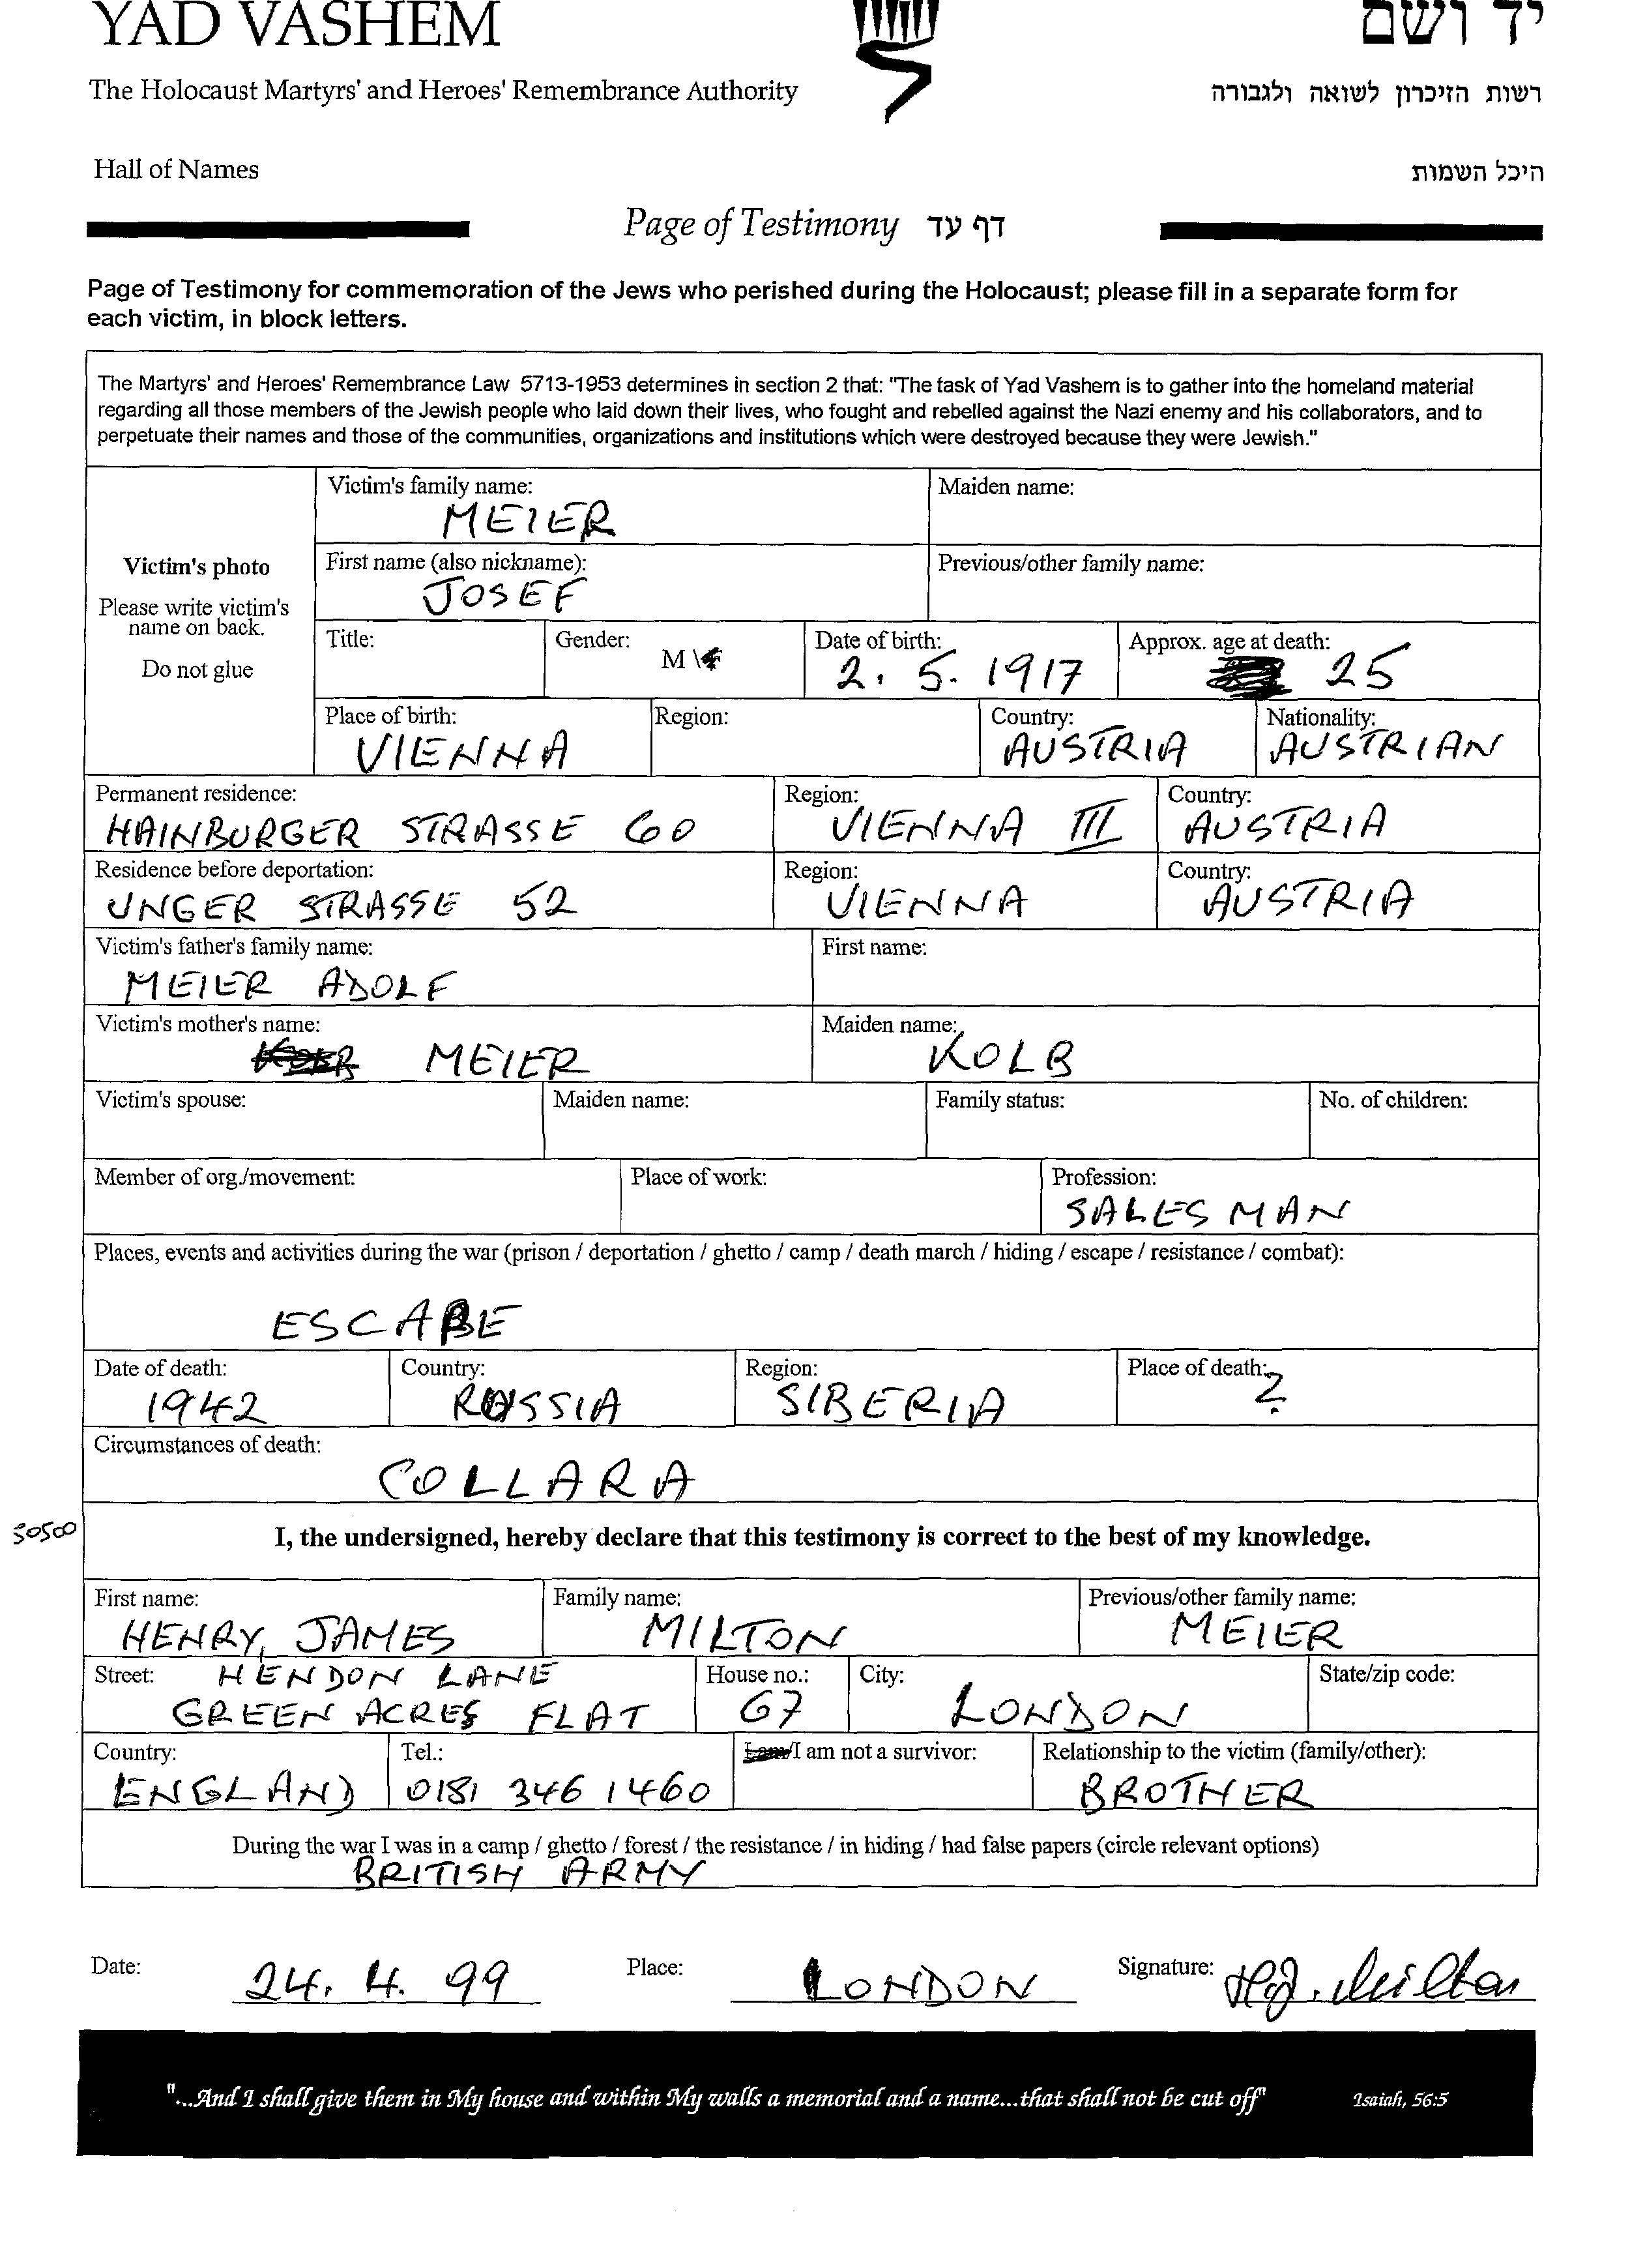 YAD VASHEM
יד ושם
The Holocaust Martyrs' and Heroes' Remembrance Authority
רשות הזיכרון לשואה ולגבורה
Hall of Names
היכל השמות
Page of Testimony דף עד
Page of Testimony for commemoration of the Jews who perished during the Holocaust; please fill in a separate form for
each victim, in block letters.
The Martyrs' and Heroes' Remembrance Law 5713-1953 determines in section 2 that: "The task of Yad Vashem is to gather into the homeland material
regarding all those members of the Jewish people who laid down their lives, who fought and rebelled against the Nazi enemy and his collaborators, and to
perpetuate their names and those of the communities, organizations and institutions which were destroyed because they were Jewish."
Victim's photo
Please write victim's
name on back.
Do not glue
Victim's family name: Maiden name:
MEIER
First name (also nickname): Previous/other family name:
JOSEF
Title: Gender: M \ Date of birth: Approx. age at death:
2. 5. 1917 25
Place of birth: Region: Country: Nationality:
VIENNA AUSTRIA AUSTRIAN
Permanent residence: Region: Country:
HAINBURGER STRASSE 60 VIENNA III AUSTRIA
Residence before deportation: Region: Country:
UNGER STRASSE 52 VIENNA AUSTRIA
Victim's father's family name: First name:
MEIER ADOLF
Victim's mother's name: Maiden name:
MEIER KOLB
Victim's spouse: Maiden name: Family status: No. of children:
Member of org./movement: Place of work: Profession:
SALES MAN
Places, events and activities during the war (prison / deportation / ghetto / camp / death march / hiding / escape / resistance / combat):
ESCAPE
Date of death: Country: Region: Place of death:
1942 RUSSIA SIBERIA ?
Circumstances of death:
COLLARA
50500
I, the undersigned, hereby declare that this testimony is correct to the best of my knowledge.
First name: Family name: Previous/other family name:
HENRY, JAMES MILTON MEIER
Street: HENDON LANE House no.: City: State/zip code:
GREEN ACRES FLAT 67 LONDON
Country: Tel.: I am not a survivor: Relationship to the victim (family/other):
ENGLAND 0181 346 1460 BROTHER
During the war I was in a camp / ghetto / forest / the resistance / in hiding / had false papers (circle relevant options)
BRITISH ARMY
Date: 24. 4. 99 Place: LONDON Signature: HJ. Milton
"...And I shall give them in My house and within My walls a memorial and a name...that shall not be cut off" Isaiah, 56:5